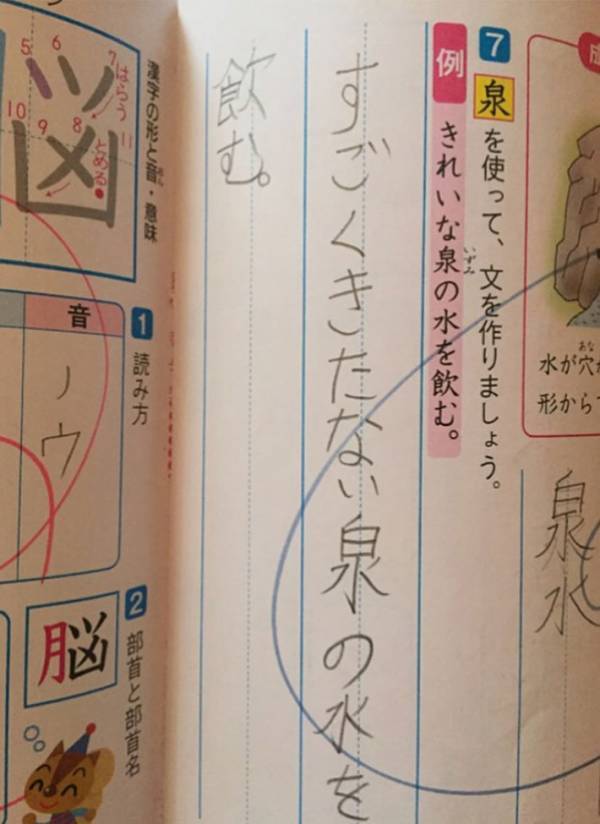 成
水が穴
あな
形から
泉水
7 泉を使って、文を作りましょう。
例 きれいな泉の水を飲む。
いずみ
すごくきたない泉の水を
飲む。
漢字の形と音・意味
おん
5 6 7 はらう
10 9 8 とめる 11
1 読み方
音
ノウ
2 部首と部首名
脳